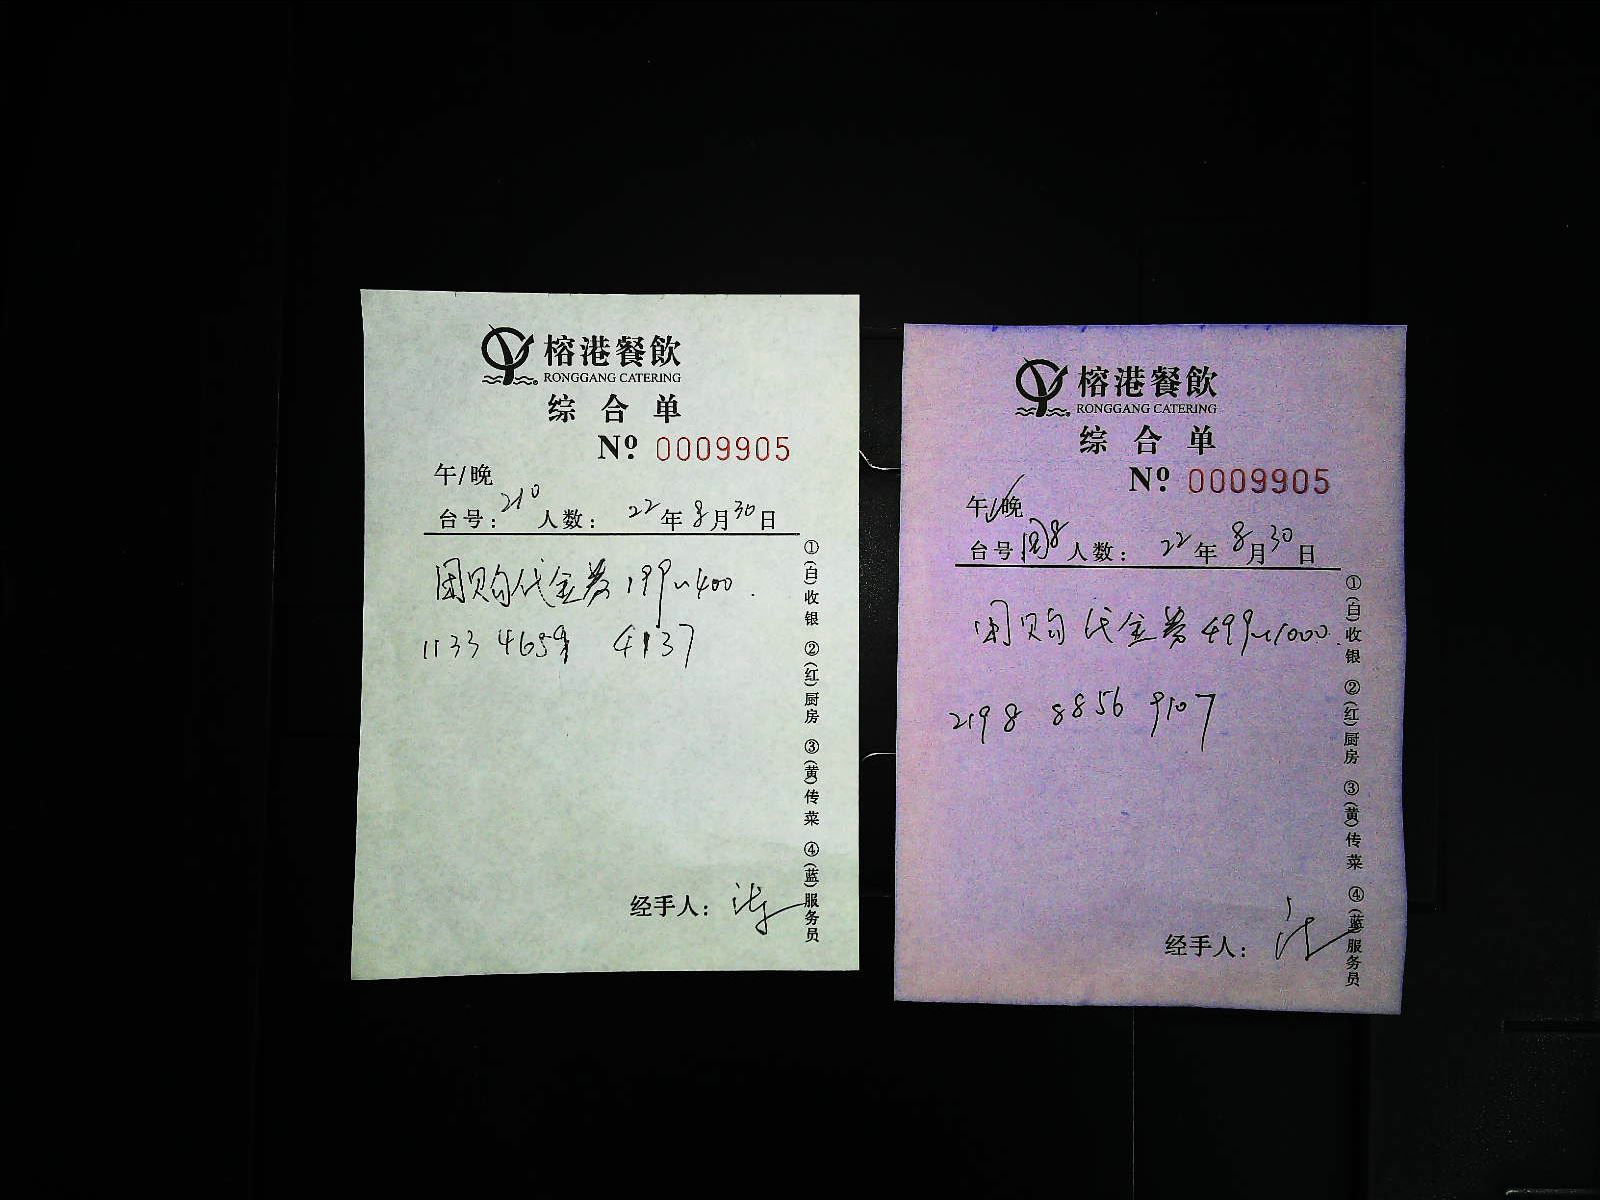 榕港餐飲
RONGGANG CATERING
综合单
Nº 0009905
午/晚
台号: 210 人数: 22年8月30日
团购代金券199抵400.
1133 4659 4137
经手人:
①(白)收银 ②(红)厨房 ③(黄)传菜 ④(蓝)服务员
榕港餐飲
RONGGANG CATERING
综合单
Nº 0009905
午/晚
台号 阅8 人数: 22年8月30日
团购代金券499抵1000.
2198 8856 9107
经手人:
①(白)收银 ②(红)厨房 ③(黄)传菜 ④(蓝)服务员